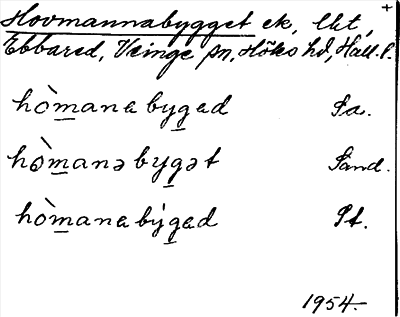 Hovmannabygget ek, lkt, +
Ebbared, Veinge sn, Höks hd, Hall. l.
hòmanabygad Sa.
hòmanə bygət Sand.
hòmanabýgad St.
1954.